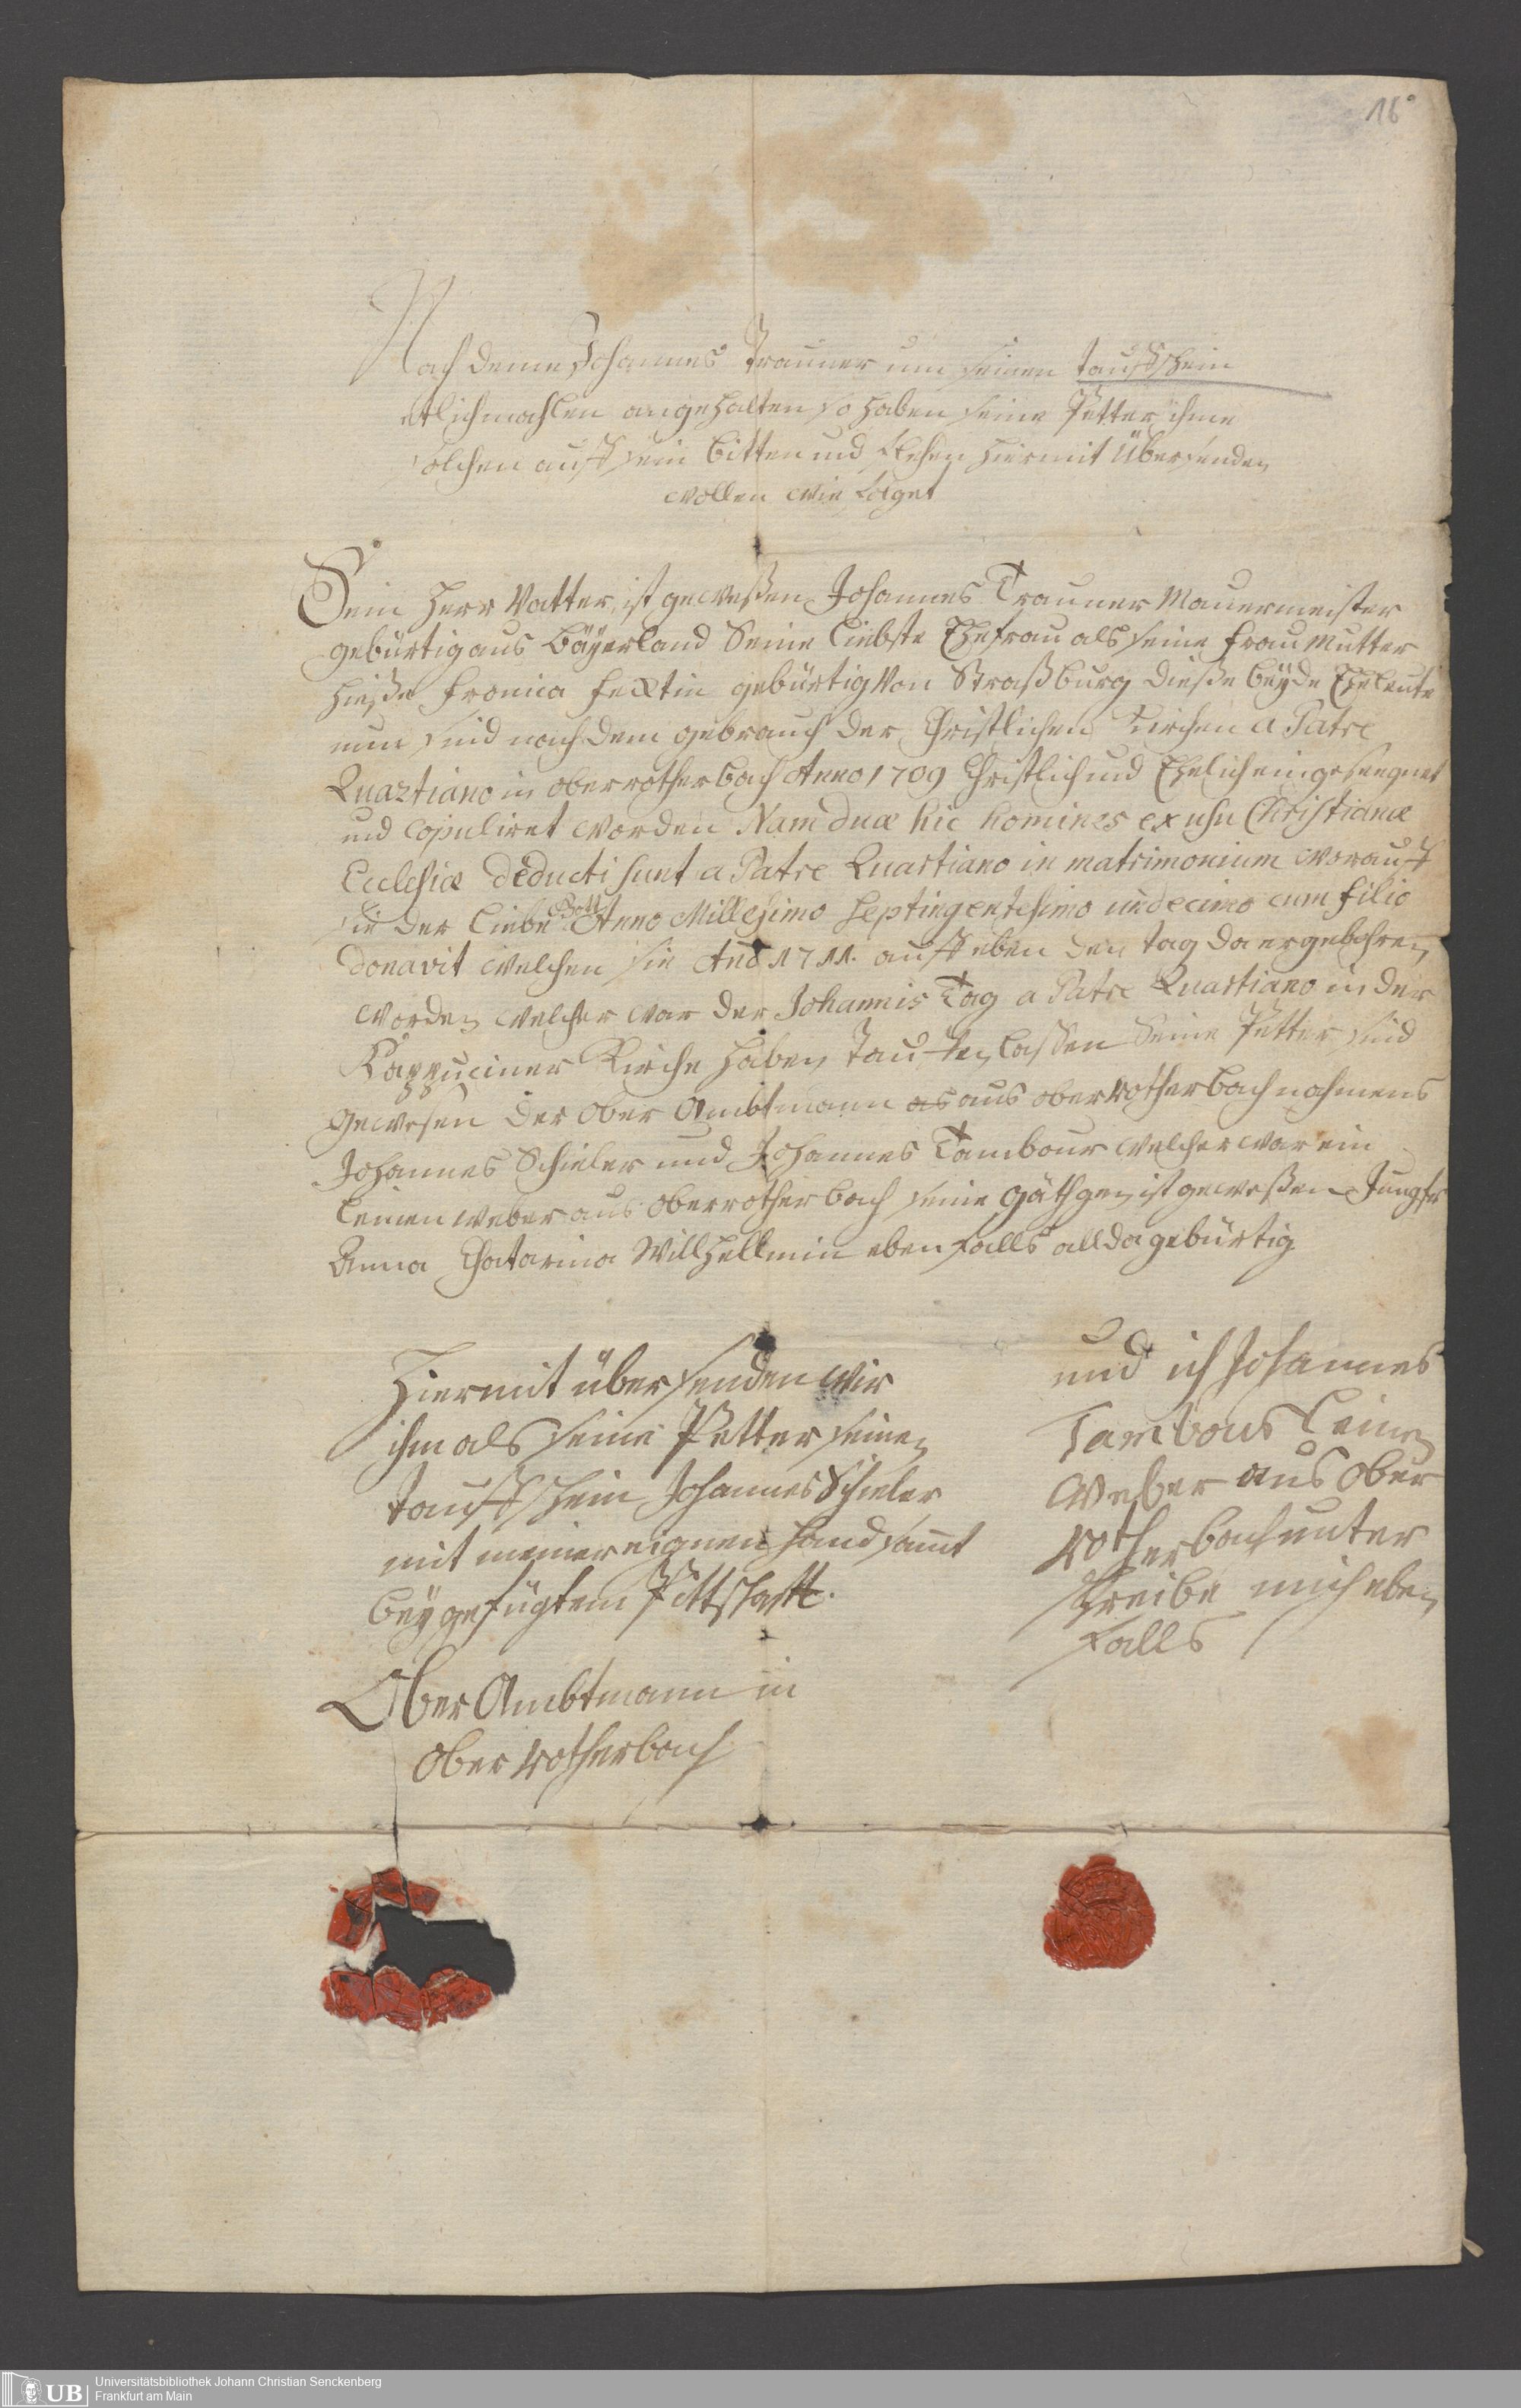 16
Nach deme Johannes Trauner um seinen tauffschein
etlichmahlen angehalten so haben seine Petter ihme
solchen auff sein bitten und flehen hiermit übersenden
wollen wie folget
Sein Herr Vatter ist geweßen Johannes Trauner Mauermeister
gebürtig aus Bäyerland Seine liebste Ehefrau als seine frau Mutter
hieße fronica fextin gebürtig Von Straßburg dieße beyde Eheleute
nun sind nach dem gebrauch der Christlichen Kirchen a Patre
Quaztiano in oberrotherbach Anno 1709 Christlich und Ehelich eingeseegnet
und copuliret worden Nam duæ hic homines ex usu Christianæ
Ecclesiæ deducti sunt a Patre Quartiano in matrimonium worauff
sie der liebe Gott Anno Millesimo septingentesimo undecimo cum filio
donavit welchen sie Ano 1711. auff eben den tag da er gebohren
worden welcher war der Johannis Tag a Patre Quartiano in der
Kappuciner Kirche haben tauffen lassen Seine Petter sind
gewesen der ober Ambtmann as aus oberrotherbach nahmens
Johannes Schieler und Johannes Tambour welcher war ein
leinenweber aus oberrotherbach seine Gäthgen ist geweßen Jungfr
Anna Chatarina Willhellmin ebenfalls allda gebürtig
Hiermit übersenden wir
ihm als seine Petter seinen
tauffschein Johannes Schieler
mit meiner eignen hand samt
beygefügtem Pittschafft.
Ober Ambtmann in
ober rotherbach
und ich Johannes
Tambour leinen
weber aus ober
rotherbach unter
schreibe mich eben
falls
UB
Universitätsbibliothek Johann Christian Senckenberg
Frankfurt am Main